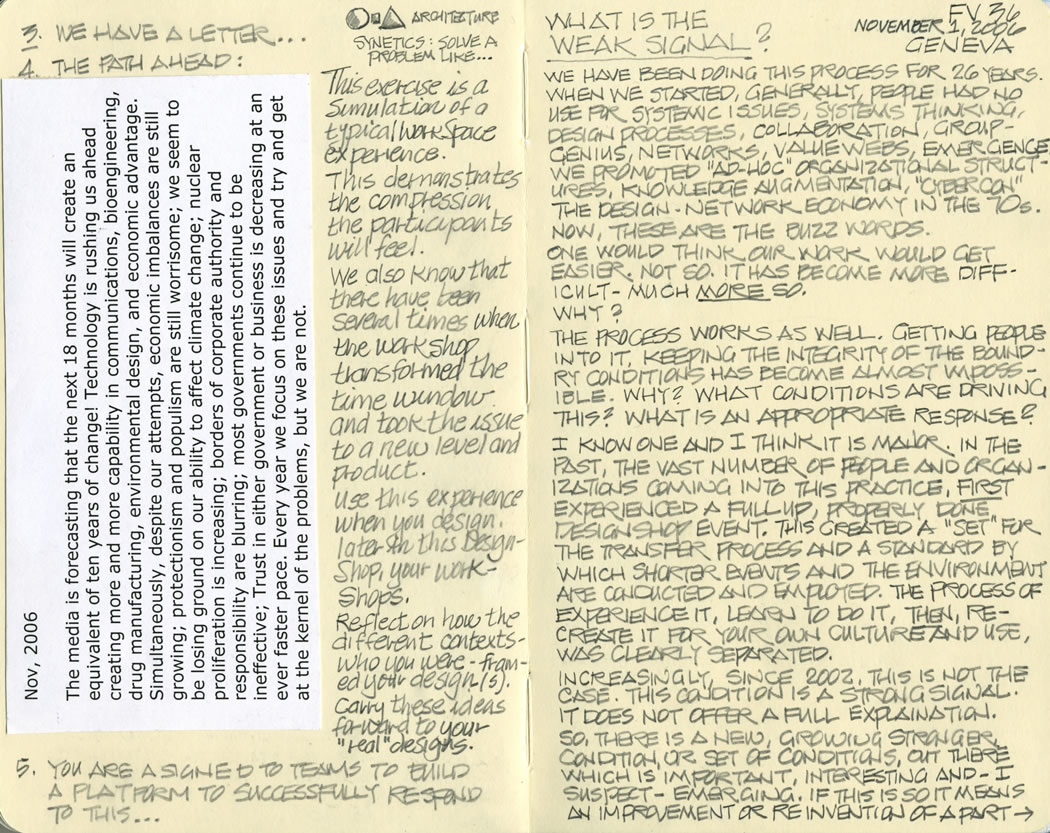 3. WE HAVE A LETTER...
4. THE PATH AHEAD:
Nov, 2006
The media is forecasting that the next 18 months will create an
equivalent of ten years of change! Technology is rushing us ahead
creating more and more capability in communications, bioengineering,
drug manufacturing, environmental design, and economic advantage.
Simultaneously, despite our attempts, economic imbalances are still
growing; protectionism and populism are still worrisome; we seem to
be losing ground on our ability to affect climate change; nuclear
proliferation is increasing; borders of corporate authority and
responsibility are blurring; most governments continue to be
ineffective; Trust in either government or business is decreasing at an
ever faster pace. Every year we focus on these issues and try and get
at the kernel of the problems, but we are not.
5. YOU ARE ASIGNED TO TEAMS TO BUILD
A PLATFORM TO SUCCESSFULLY RESPOND
TO THIS...
ARCHITECTURE
SYNETICS: SOLVE A
PROBLEM LIKE...
This exercise is a
simulation of a
typical workSpace
experience.
This demonstrates
the compression
the participants
will feel.
We also know that
there have been
several times when
the workshop
transformed the
time window
and took the issue
to a new level and
product.
Use this experience
when you design.
later in this Design-
Shop, your work-
Shops.
Reflect on how the
different contexts-
who you were - fram-
ed your design(s).
Carry these ideas
forward to your
"real" designs.
FV 36
NOVEMBER 1, 2006
GENEVA
WHAT IS THE
WEAK SIGNAL?
WE HAVE BEEN DOING THIS PROCESS FOR 26 YEARS.
WHEN WE STARTED, GENERALLY, PEOPLE HAD NO
USE FOR SYSTEMIC ISSUES, SYSTEMS THINKING,
DESIGN PROCESSES, COLLABORATION, GROUP-
GENIUS, NETWORKS, VALUEWEBS, EMERGENCE
WE PROMOTED "AD-HOC" ORGANIZATIONAL STRUCT-
URES, KNOWLEDGE AUGMENTATION, "CYBERCON"
THE DESIGN-NETWORK ECONOMY IN THE 70s.
NOW, THESE ARE THE BUZZ WORDS.
ONE WOULD THINK OUR WORK WOULD GET
EASIER. NOT SO. IT HAS BECOME MORE DIFF-
ICULT - MUCH MORE SO.
WHY?
THE PROCESS WORKS AS WELL. GETTING PEOPLE
INTO IT, KEEPING THE INTEGRITY OF THE BOUND-
RY CONDITIONS HAS BECOME ALMOST IMPOSS-
IBLE. WHY? WHAT CONDITIONS ARE DRIVING
THIS? WHAT IS AN APPROPRIATE RESPONSE?
I KNOW ONE AND I THINK IT IS MAJOR. IN THE
PAST, THE VAST NUMBER OF PEOPLE AND ORGAN-
IZATIONS COMING INTO THIS PRACTICE, FIRST
EXPERIENCED A FULL UP, PROPERLY DONE
DESIGNSHOP EVENT. THIS CREATED A "SET" FOR
THE TRANSFER PROCESS AND A STANDARD BY
WHICH SHORTER EVENTS AND THE ENVIRONMENT
ARE CONDUCTED AND EMPLOYED. THE PROCESS OF
EXPERIENCE IT, LEARN TO DO IT, THEN, RE-
CREATE IT FOR YOUR OWN CULTURE AND USE,
WAS CLEARLY SEPARATED.
INCREASINGLY, SINCE 2002, THIS IS NOT THE
CASE. THIS CONDITION IS A STRONG SIGNAL.
IT DOES NOT OFFER A FULL EXPLAINATION.
SO, THERE IS A NEW, GROWING STRONGER,
CONDITION, OR SET OF CONDITIONS, OUT THERE
WHICH IS IMPORTANT, INTERESTING AND - I
SUSPECT - EMERGING. IF THIS IS SO IT MEANS
AN IMPROVEMENT OR REINVENTION OF A PART →